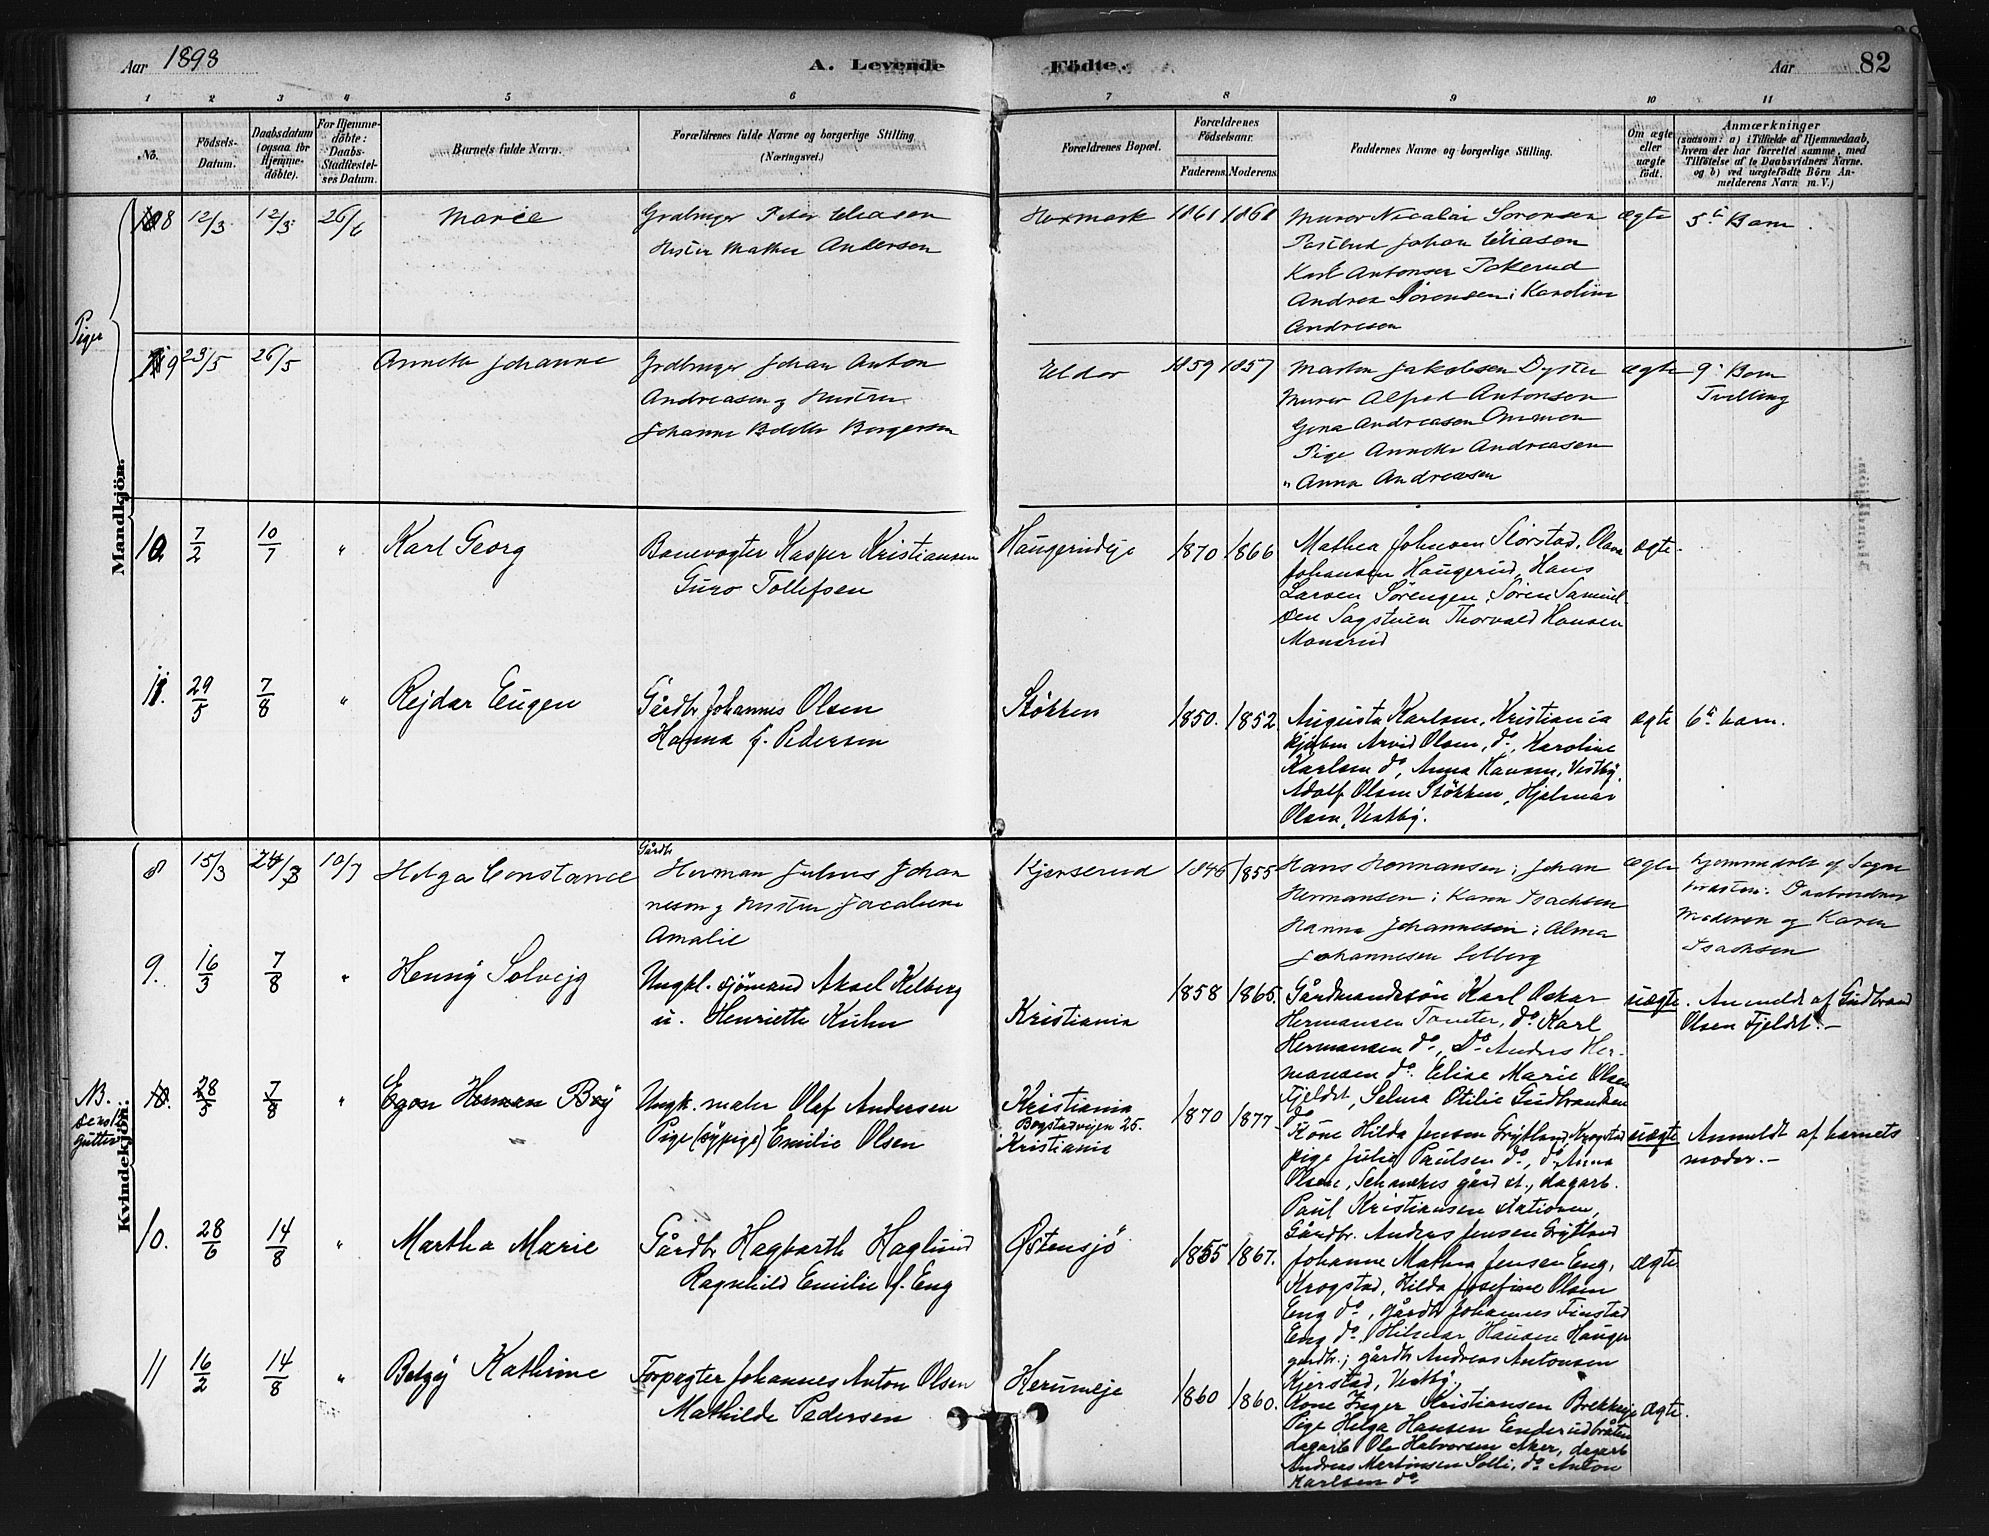 Aar 1898
A. Levende
Födte.
Aar
82
1 2 3 4 5 6 7 8 9 10 11
No.
Födsels-
Datum.
Daabsdatum
(ogsaa for
Hjemme-
döbte).
For Hjemme-
döbte:
Daabs-
Stadfæstel-
ses Datum.
Barnets fulde Navn.
Forældrenes fulde Navne og borgerlige Stilling.
(Næringsvei.)
Forældrenes Bopæl.
Forældrenes
Födselsaar.
Faderens. Moderens.
Faddernes Navne og borgerlige Stilling.
Om ægte
eller
uægte
födt.
Anmærkninger
(saasom: a) i Tilfælde af Hjemmedaab,
hvem der har forrettet samme, med
Tilföielse af to Daabsvidners Navne.
og b) ved uægtefödte Börn An-
melderens Navn m. V.)
Piger
Mandkjön.
8 12/3 12/3 26/6 Marie
Hustru Mathea Andersen
1861 1861
Murer Nicolai Sorensen
Johan Eliasen
Karl Antonsen
Andrea Sörensen; Karoline
Andresen
ægte
5te Barn.
9 23/5 26/5 Annette Johanne
Grdbruger Johan Anton
Andreasen og Hustru
Johanne Bolette Borgersen
Eldor
1859 1857
Martin Jakobsen Dyster
Murer Alfred Antonsen
Gina Andreasen Ommon
Pige Annette Andreasen
" Anna Andreasen
ægte
9. Barn
Tvilling
10 7/2 10/7 " Karl Georg
Banevogter Kasper Kristiansen
Guro Tollefsen
Haugerudeje
1870 1866
Mathea Johnsen Storstad, Olava
Johansen Haugerud, Hans
Larsen Sørengen, Søren Samuel-
sen Sagstuen Thorvald Hansen
Monsrud
ægte.
11. 29/5 7/8 " Rejdar Eugen
Gårdbr Johannes Olsen
Hanna f. Pedersen
Støkken
1850. 1852
Augusta Karlsen, Kristiania
kjøbm Arvid Olsen, do, Karoline
Karlsen do, Anna Hansen, Vestby.
Adolf Olsen Støkken, Hjalmar
Olsen, Vestby.
ægte
6te barn.
Kvindekjön.
8 15/3 24/3 10/7 Helga Constance
Gårdbr
Herman Julius Johan
nesen og Hustru Jacobine
Amalie
Kjenserud
1846 1855
Hans Hermansen; Johan
Hermansen; Karen Isachsen
Hanna Johannesen; Alma
Johannesen Solberg
ægte
Hjemmedøbt af Sogne
presten. Daabsvidner
Moderen og Karen
Isachsen
9. 16/3 7/8 " Henny Solvejg
Ungkl. sjømand Aksel Kelberg
u. Henriette Kuhn
Kristiania
1858 1865.
Gårdmandssøn Karl Oskar
Hermansen Tomter, do Karl
Hermansen do, Do Anders Her-
mansen do Elise Marie Olsen
Fjeldet, Selma Otilie Gudbrandsen
do
uægte.
Anmeldt af Gudbrand
Olsen Fjeldet.-
NB.
Gutter
10. 28/5 7/8 " Egon Herman Boy
Ungk. maler Olaf Andersen
Pige (sypige) Emilie Olsen
Kristiania
Bogstadvejen 25.
Kristiania
1870 1877.
Kone Hilda Jensen Grytland, Krogstad
pige Julie Paulsen do, do Anna
Olsen, Schanches gård st., dagarb.
Paul Kristiansen stationen,
Gårdbr. Anders Jensen Grytland
uægte
Anmeldt af barnets
moder.-
10. 28/6 14/8 " Martha Marie
Gårdbr Hagbarth Haglund
Ragnhild Emilie f. Eng
Østensjø
1855 1867.
Johanne Mathea Jensen Eng,
Krogstad, Hilda Josefine Olsen
Eng do, gårdbr Johannes Finstad
Eng do, Hilmar Hansen Hauger
gårdbr.; gårdbr Andreas Antonsen
Kjerstad, Vestby.
ægte
11 16/2 14/8 " Betzy Kathrine
Forpagter Johannes Anton Olsen
Mathilde Pedersen
Herumeje
1860 1860.
Kone Inger Kristiansen Brekkeje
Pige Helga Hansen Enderudbråten
dagarb Ole Halvorsen Aker, dagarb
Andreas Martinsen Solli, do Anton
Karlsen do
ægte.